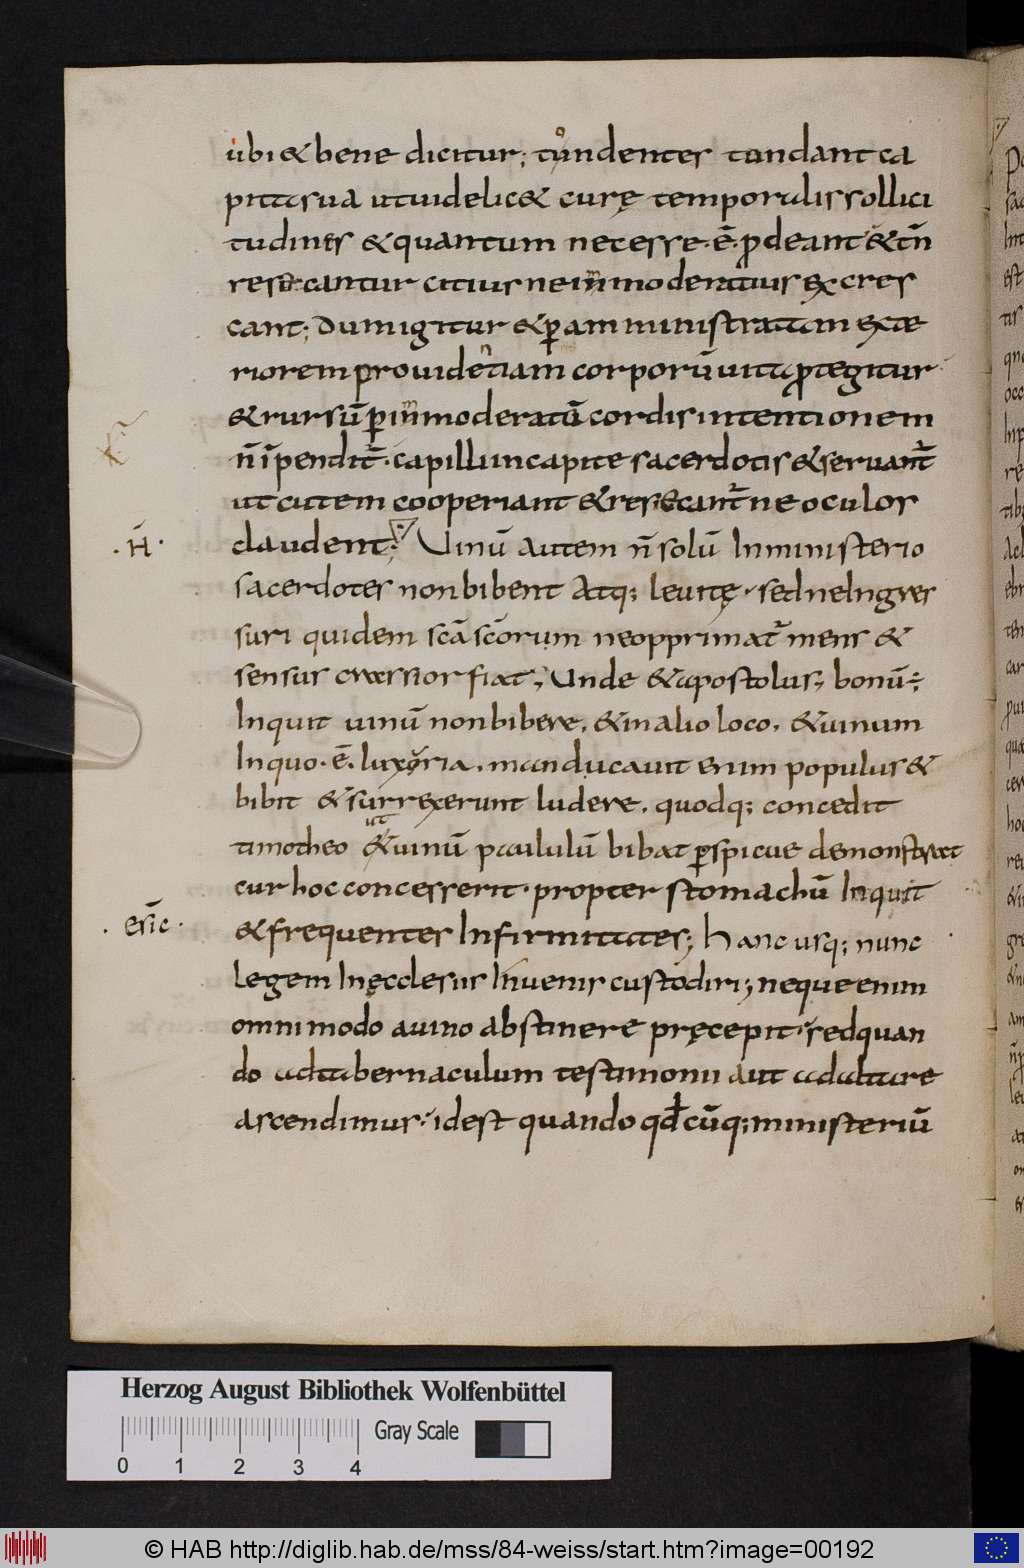 ubi & bene dicitur; tundentes tondant ca
pita sua ut uidelic& curę temporalis sollici
tudines & quantum necesse ē pdeant & tn̄
resecantur citius ne inmoderatius excres
cant; Dum igitur & p amministratam exte
riorem prouidentiam corporū uita ptegitur
& rursū p inmoderatū cordis intentionem
n̄ īpendit̄. capilli in capite sacerdotis & seruant̄
ut cutem cooperiant & resecant̄ ne oculos
claudent; Uinū autem n̄ solū In ministerio
·H̄·
sacerdotes non bibent Atq; leuitę. sed ne Ingres
suri quidem scā scōrum ne opprimat̄ mens &
sensus crassior fiat, Unde & apostolus; bonū ÷
Inquit uinū non bibere. & in alio loco. & uinum
In quo. ē. luxoria. manducauit enim populus &
bibit & surrexerunt ludere. quodq; concedit
timotheo ut & uinū paululū bibat pspicue demonstrat
cur hoc concesserit. propter stomachū Inquit
& frequentes Infirmitates; Hanc usq; nunc
· esīc ·
legem In ęcclesiis Inuenis custodiri; neque enim
omnimodo a uino abstinere pręcepit. sed quan
do ad tabernaculum testimonii aut ad altare
ascendimus. idest quando qd cūq; ministeriū
Herzog August Bibliothek Wolfenbüttel
Gray Scale
0 1 2 3 4
© HAB http://diglib.hab.de/mss/84-weiss/start.htm?image=00192